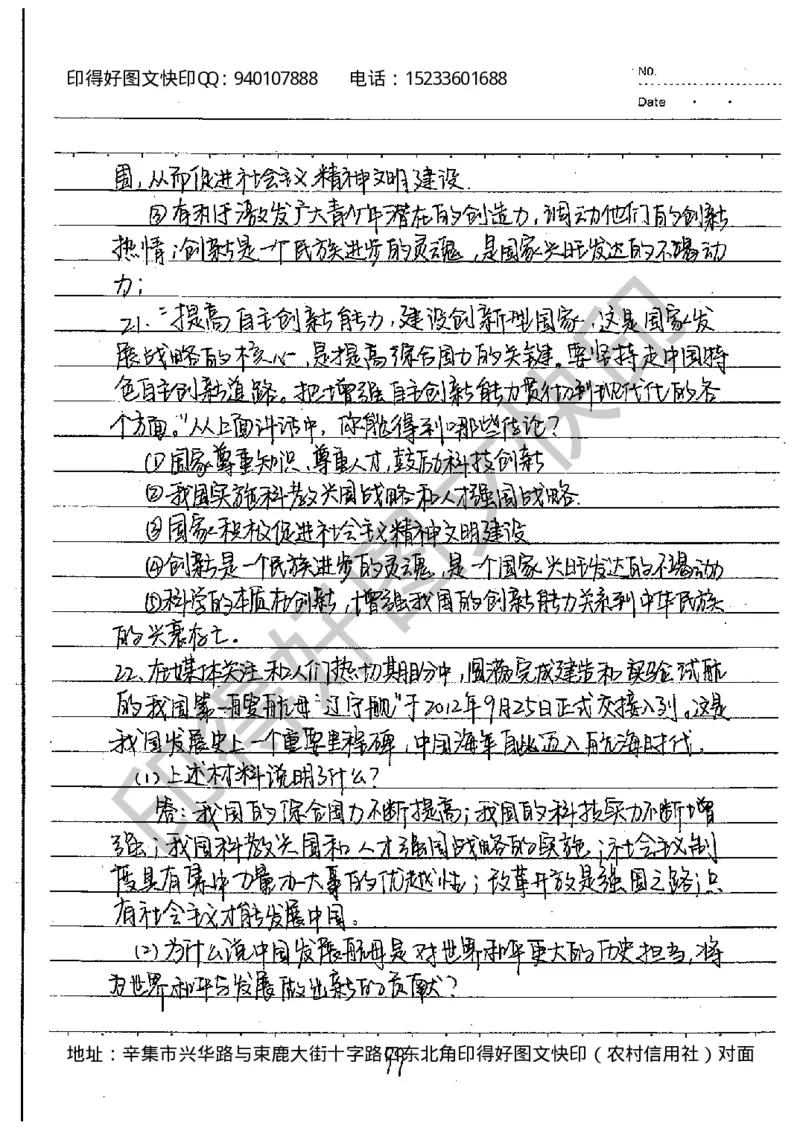 印得好图文快印QQ：940107888 电话：15233601688
NO.
Date
围，从而促进社会主义精神文明建设.
③有利于激发广大青少年潜在的创造力，调动他们的创新
热情；创新是一个民族进步的灵魂，是国家兴旺发达的不竭动
力；
21、“提高自主创新能力，建设创新型国家，这是国家发
展战略的核心，是提高综合国力的关键。要坚持走中国特
色自主创新道路。把增强自主创新能力贯彻到现代化的各
个方面。”从上面讲话中，你能得到哪些结论？
①国家尊重知识、尊重人才，鼓励科技创新
②我国实施科教兴国战略和人才强国战略.
③国家积极促进社会主义精神文明建设
④创新是一个民族进步的灵魂，是一个国家兴旺发达的不竭动
⑤科学的本质在创新，增强我国的创新能力关系到中华民族
的兴衰存亡.
22、在媒体关注和人们热切期盼中，圆满完成建造和实验试航
的我国第一艘航母“辽宁舰”于2012年9月25日正式交接入列。这是
我国发展史上一个重要里程碑，中国海军自此迈入航海时代.
(1)上述材料说明了什么？
答：我国的综合国力不断提高；我国的科技实力不断增
强；我国科教兴国和人才强国战略的实施；社会主义制
度具有集中力量办大事的优越性；改革开放是强国之路；只
有社会主义才能发展中国。
(2)为什么说中国发展航母是对世界和平更大的历史担当，将
为世界和平与发展做出新的贡献？
地址：辛集市兴华路与束鹿大街十字路口东北角印得好图文快印（农村信用社）对面
印得好图文快印